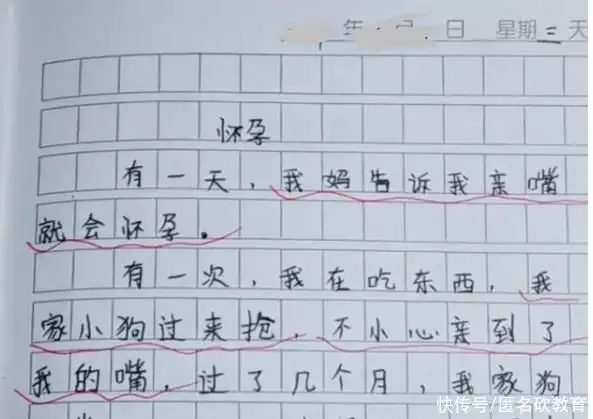 年 月 日 星期三 天
怀孕
有一天，我妈告诉我亲嘴
就会怀孕。
有一次，我在吃东西，我
家小狗过来抢，不小心亲到了
我的嘴，过了几个月，我家狗
快传号/匿名砍教育